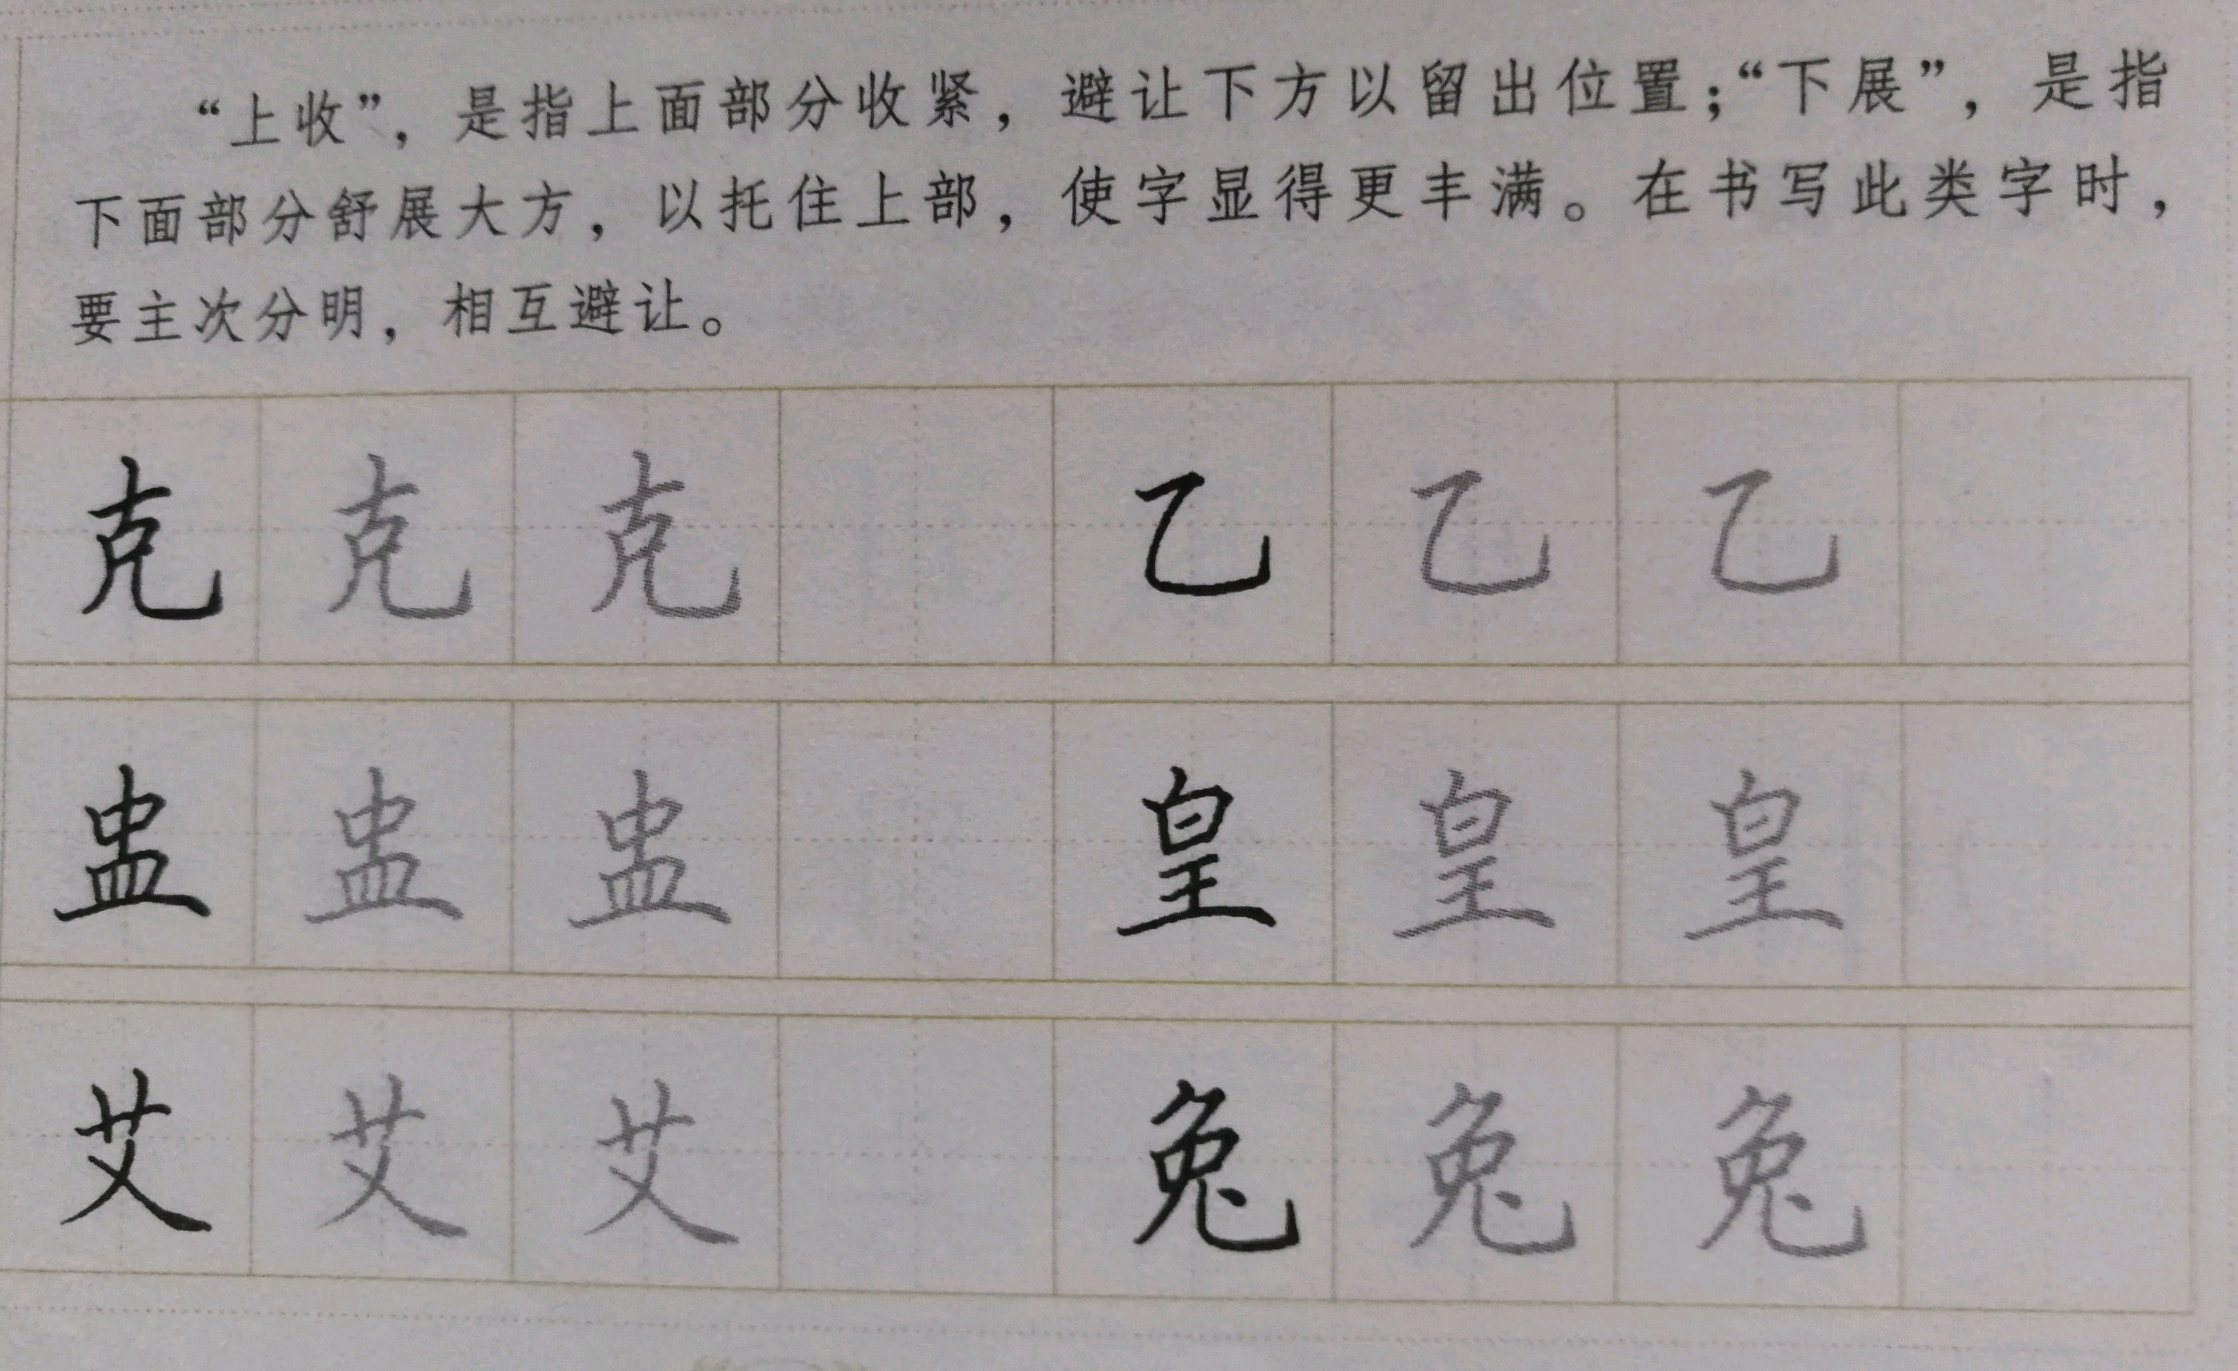 “上收”，是指上面部分收紧，避让下方以留出位置；“下展”，是指
下面部分舒展大方，以托住上部，使字显得更丰满。在书写此类字时，
要主次分明，相互避让。
克 克 克 乙 乙 乙
盅 盅 盅 皇 皇 皇
艾 艾 艾 兔 兔 兔